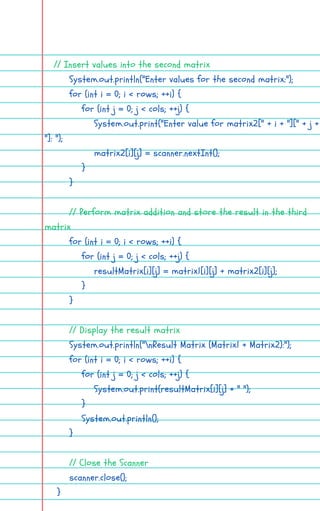 // Insert values into the second matrix
System.out.println("Enter values for the second matrix:");
for (int i = 0; i < rows; ++i) {
for (int j = 0; j < cols; ++j) {
System.out.print("Enter value for matrix2[" + i + "][" + j +
"]: ");
matrix2[i][j] = scanner.nextInt();
}
}
// Perform matrix addition and store the result in the third
matrix
for (int i = 0; i < rows; ++i) {
for (int j = 0; j < cols; ++j) {
resultMatrix[i][j] = matrix1[i][j] + matrix2[i][j];
}
}
// Display the result matrix
System.out.println("\nResult Matrix (Matrix1 + Matrix2):");
for (int i = 0; i < rows; ++i) {
for (int j = 0; j < cols; ++j) {
System.out.print(resultMatrix[i][j] + " ");
}
System.out.println();
}
// Close the Scanner
scanner.close();
}